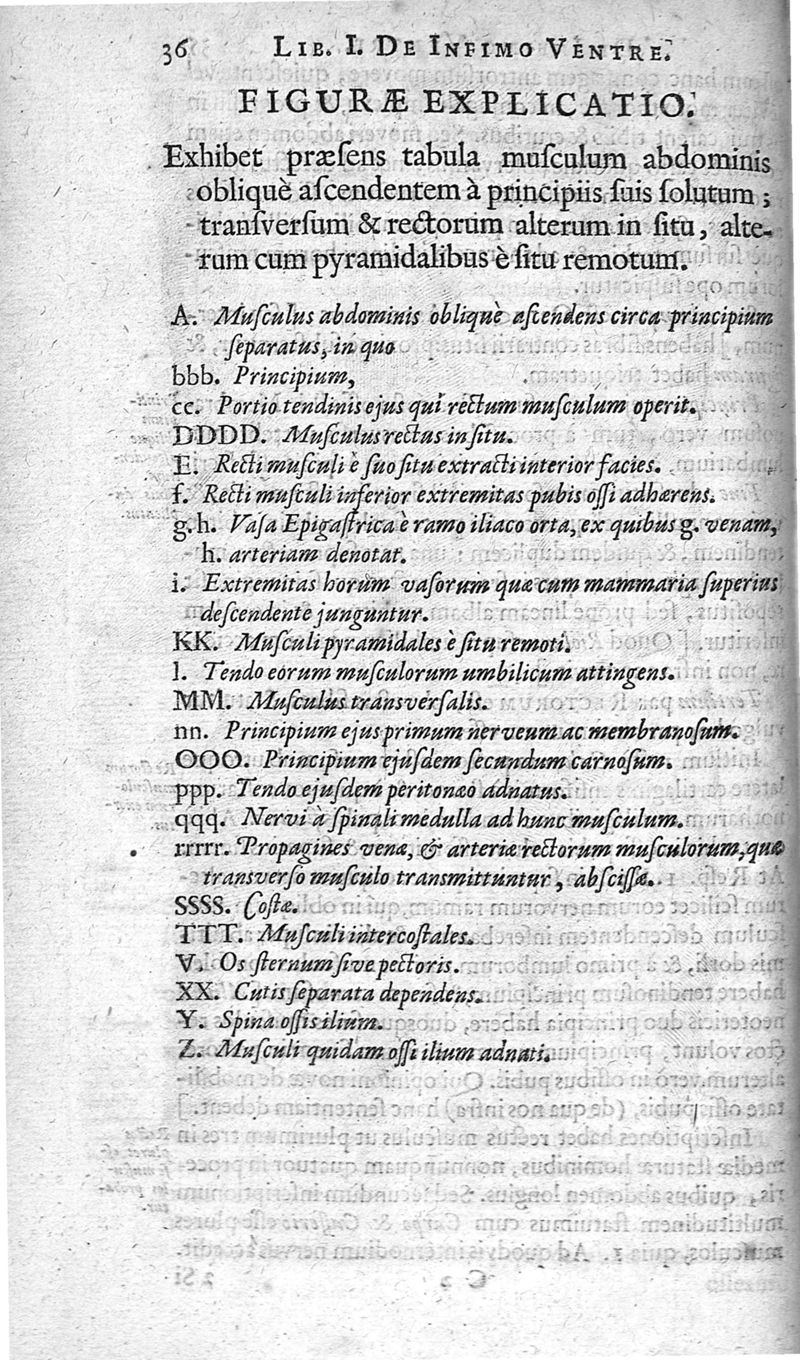 36 LIB. I. DE INFIMO VENTRE.
FIGURÆ EXPLICATIO.
Exhibet præſens tabula muſculum abdominis
obliquè aſcendentem à principiis ſuis ſolutum ;
tranſverſum & rectorum alterum in ſitu, alte-
rum cum pyramidalibus è ſitu remotum.
A. Muſculus abdominis obliquè aſcendens circa principium
ſeparatus, in quo
bbb. Principium,
cc. Portio tendinis ejus qui rectum muſculum operit.
DDDD. Muſculus rectus in ſitu.
E. Recti muſculi è ſuo ſitu extracti interior facies.
f. Recti muſculi inferior extremitas pubis oſſi adhærens.
g.h. Vaſa Epigaſtrica è ramo iliaco orta, ex quibus g. venam,
h. arteriam denotat.
i. Extremitas horum vaſorum quæ cum mammaria ſuperius
deſcendente junguntur.
KK. Muſculi pyramidales è ſitu remoti.
l. Tendo eorum muſculorum umbilicum attingens.
MM. Muſculus transverſalis.
nn. Principium ejus primum nerveum ac membranoſum.
OOO. Principium ejuſdem ſecundum carnoſum.
ppp. Tendo ejuſdem peritonæo adnatus.
qqq. Nervi à ſpinali medulla ad hunc muſculum.
rrrrr. Propagines venæ, & arteriæ rectorum muſculorum, quæ
transverſo muſculo transmittuntur, abſciſſæ.
SSSS. Coſtæ.
TTT. Muſculi intercoſtales.
V. Os ſternum ſive pectoris.
XX. Cutis ſeparata dependens.
Y. Spina oſſis ilium.
Z. Muſculi quidam oſſi ilium adnati.